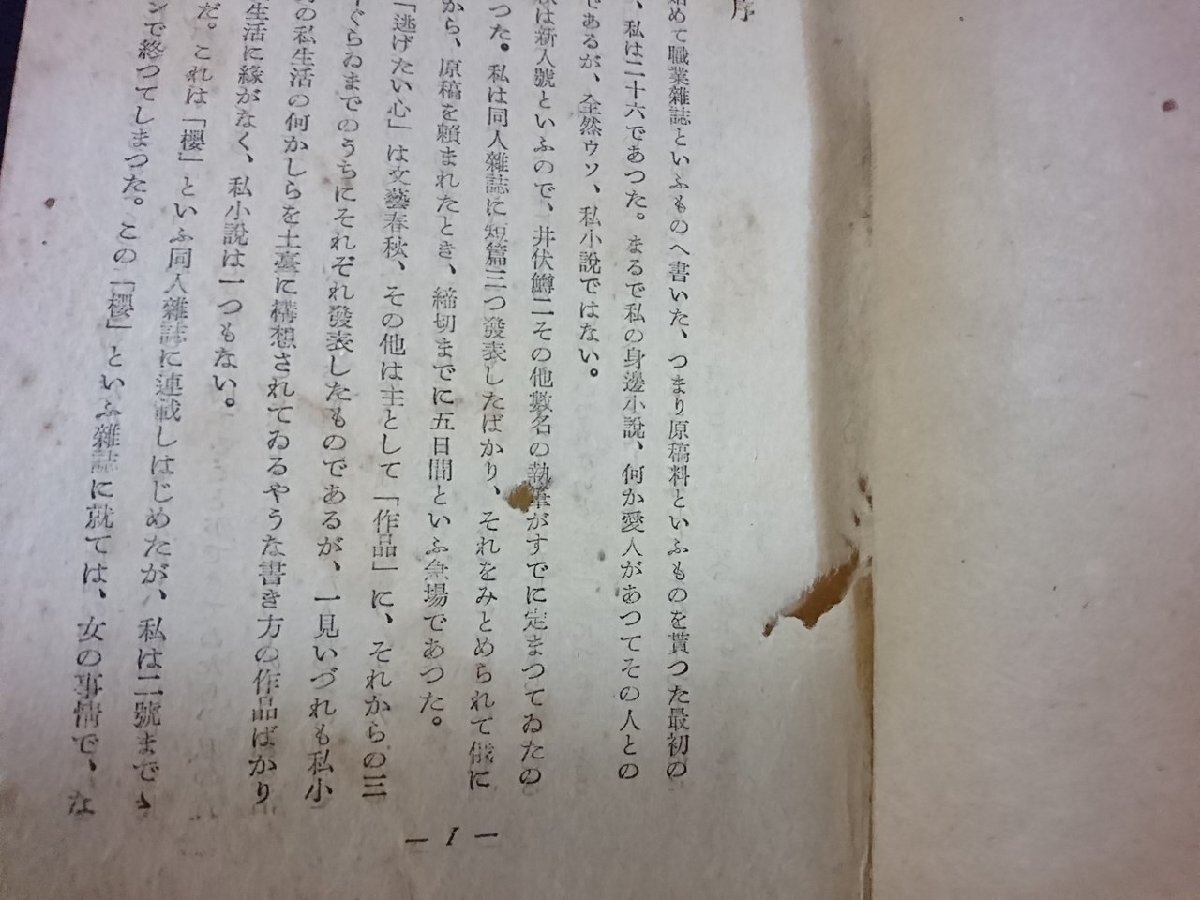 序
始めて職業雜誌といふものへ書いた、つまり原稿料といふものを貰つた最初の
、私は二十六であつた。まるで私の身邊小説、何か愛人があつてその人との
であるが、全然ウソ、私小説ではない。
は新人號といふので、井伏鱒二その他數名の執筆がすでに定まつてゐたの
つた。私は同人雜誌に短篇三つ發表したばかり、それをみとめられて俄に
から、原稿を頼まれたとき、締切までに五日間といふ急場であつた。
「逃げたい心」は文藝春秋、その他は主として「作品」に、それからの三
ぐらゐまでのうちにそれぞれ發表したものであるが、一見いづれも私小
の私生活の何かしらを土臺に構想されてゐるやうな書き方の作品ばかり
生活に縁がなく、私小説は一つもない。
だ。これは「櫻」といふ同人雜誌に連載しはじめたが、私は二號までゝ
ンで終つてしまつた。この「櫻」といふ雜誌に就ては、女の事情で、な
— 1 —